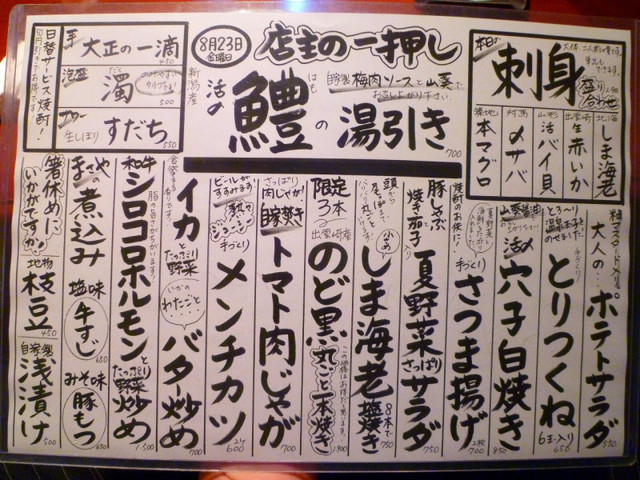 8月23日
金曜日
店主の一押し
新潟産
活〆
鱧の湯引き
はも
自家製 梅肉ソースと山葵で
お召し上がり下さい
700
本日の
刺身
盛り合わせ
北海
しま海老
出雲崎
生赤いか
山形
活バイ貝
対馬
〆サバ
築地
本マグロ
日替サービス焼酎!
芋
大正の一滴
450
泡盛
濁
500
サワー
生しぼり
すだち
550
粒マスタード
大人の…
ポテトサラダ
550
とろ〜り
温玉子を
のせました
とりつくね
6玉入り
650
山葵醤油
活〆
穴子白焼き
850
焼酎のお供に!
手づくり
さつま揚げ
2枚
700
豚しゃぶ
焼き茄子
夏野菜
さっぱり
サラダ
750
頭から
尾っぽまで
小ぶり
しま海老
塩焼き
8本で
750
限定
3本
出雲崎産
のど黒
丸ごと一本焼き
1,900
さっぱり
肉じゃが!
自家焚き
トマト肉じゃが
700
ビールが
すすみます!
熱々
ジューシー
手づくり
メンチカツ
2ケ
600
イカと
たっぷり
野菜
いかの
わたごと…
バター炒め
700
和牛
シロコロホルモンと
たっぷり
野菜
炒め
1,500
まさやの煮込み
塩味
牛すじ
650
みそ味
豚もつ
箸休めに
いかがですか。
地物
枝豆
450
自家製
浅漬け
500